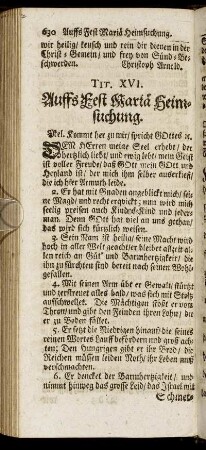 630 Auffs Fest Mariä Heimsuchung.
wir heilig / keusch und rein dir dienen in der
Christ-Gemein / und frey von Sünd-Be-
schwerden. Christoph Arnold.
TIT. XVI.
Auffs Fest Mariä Heim-
suchung.
Mel. Kommt her zu mir / spricht GOttes ꝛc.
DEM HErren meine Seel erhebt / der
hertzlich liebt / und ewig lebt / mein Geist
ist voller Freude / daß GOtt mein GOtt und
Heyland ist / der mich ihm selber auserkiest /
die ich hier Armuth leide.
2. Er hat mit Gnaden angeblickt mich / seine
Magd / und recht erquickt / nun wird mich
seelig preisen auch Kindes-Kind und jeder-
man. Denn GOtt hat viel an uns gethan /
das wird sich kürtzlich weisen.
3. Sein Nam ist heilig / seine Macht wird
hoch in aller Welt geacht / er bleibet allzeit al-
len reich an Güt' und Barmhertzigkeit / die
ihn zu fürchten sind bereit nach seinen Wohl-
gefallen.
4. Mit seinen Arm übt er Gewalt / stürtzt
und zerstreuet alles bald / was sich mit Stoltz
auffschwellet. Die Mächtigen stöst er vom
Thron / und gibt den Feinden ihren Lohn / die
er zu Boden fället.
5. Er setzt die Niedrigen hinauf / die seines
reinen Wortes Lauff befördern und groß ach-
ten; Den Hungrigen gibt er ihr Brod / die
Reichen müssen leiden Noth / ihr Leben muß
verschmachten.
6. Er dencket der Barmhertzigkeit / und
nimmt hinweg das grosse Leid / das Israel mit
Schmer-